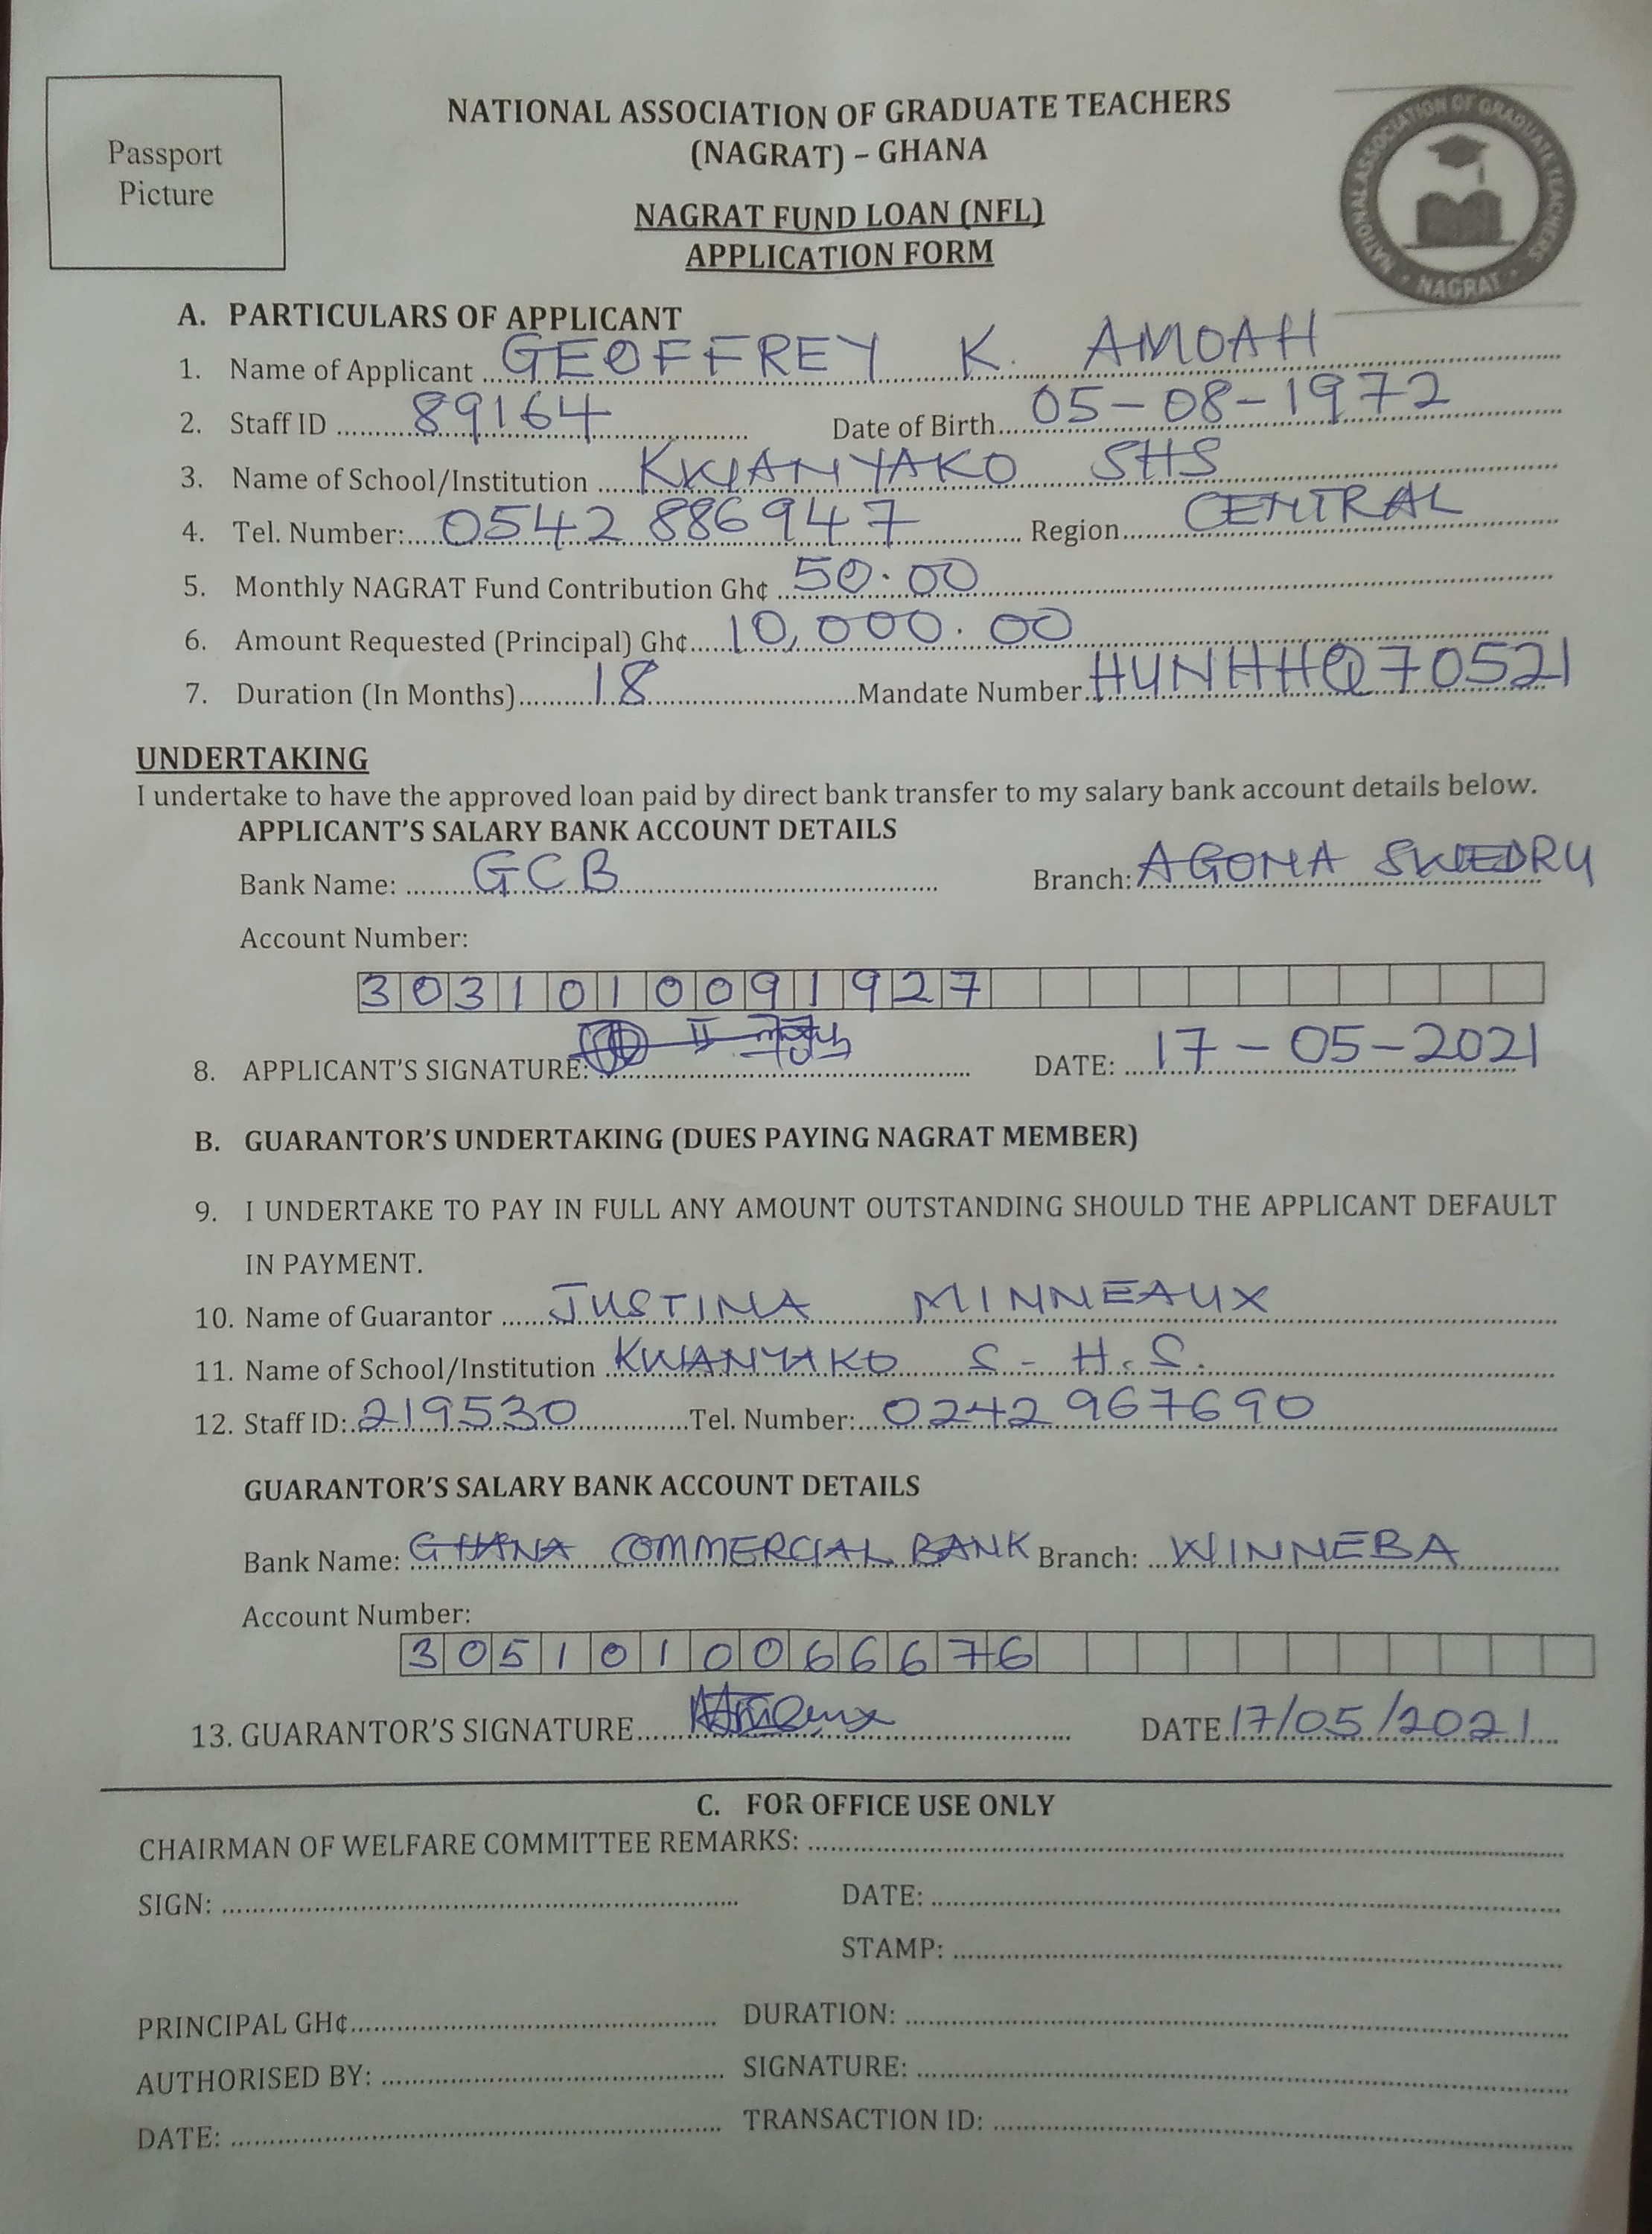 Passport
Picture
NATIONAL ASSOCIATION OF GRADUATE TEACHERS
(NAGRAT) – GHANA
NAGRAT FUND LOAN (NFL)
APPLICATION FORM
NATIONAL ASSOCIATION OF GRADUATE TEACHERS
NAGRAT
A. PARTICULARS OF APPLICANT
1. Name of Applicant GEOFFREY K. AMOAH
2. Staff ID 89164 Date of Birth 05-08-1972
3. Name of School/Institution KWANYAKO SHS
4. Tel. Number: 0542 886947 Region CENTRAL
5. Monthly NAGRAT Fund Contribution Gh¢ 50.00
6. Amount Requested (Principal) Gh¢ 10,000.00
7. Duration (In Months) 18 Mandate Number
UNDERTAKING
I undertake to have the approved loan paid by direct bank transfer to my salary bank account details below.
APPLICANT'S SALARY BANK ACCOUNT DETAILS
Bank Name: GCB Branch: AGONA SWEDRU
Account Number:
3031010091927
8. APPLICANT'S SIGNATURE: DATE: 17-05-2021
B. GUARANTOR'S UNDERTAKING (DUES PAYING NAGRAT MEMBER)
9. I UNDERTAKE TO PAY IN FULL ANY AMOUNT OUTSTANDING SHOULD THE APPLICANT DEFAULT
IN PAYMENT.
10. Name of Guarantor JUSTINA MINNEAUX
11. Name of School/Institution KWANYAKO S.H.S.
12. Staff ID: 219530 Tel. Number: 0242 967690
GUARANTOR'S SALARY BANK ACCOUNT DETAILS
Bank Name: GHANA COMMERCIAL BANK Branch: WINNEBA
Account Number:
3051010066676
13. GUARANTOR'S SIGNATURE DATE 17/05/2021
C. FOR OFFICE USE ONLY
CHAIRMAN OF WELFARE COMMITTEE REMARKS:
SIGN: DATE:
STAMP:
PRINCIPAL GH¢ DURATION:
AUTHORISED BY: SIGNATURE:
DATE: TRANSACTION ID: